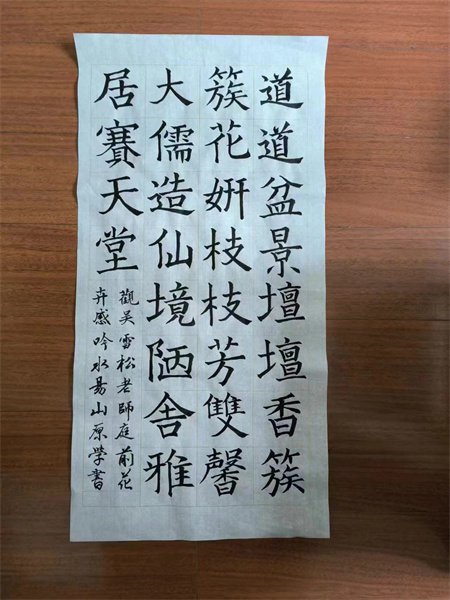 道道盆景壇壇香簇
簇花妍枝枝芳雙馨
大儒造仙境陋舍雅
居賽天堂
觀吴雪松老師庭前花
卉感吟水易山原學書